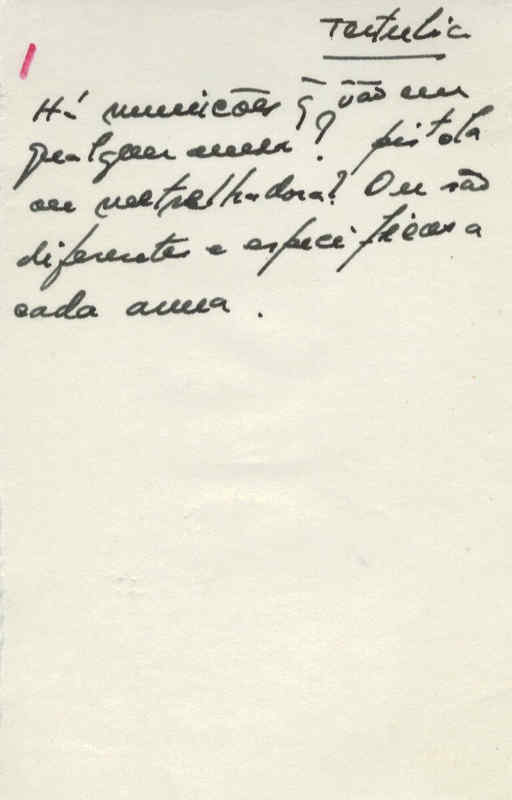 Tertulia
Há munições q̃ vão em
qualquer arma? pistola
ou metralhadora? Ou são
diferentes e especificas a
cada arma.